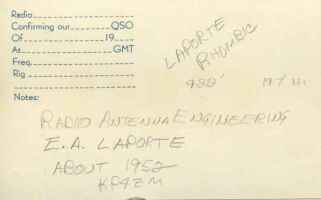 Radio
Confirming our QSO
Of 19
At GMT
Freq.
Rig
Notes:
LAPORTE
RHOMBIC
RADIO ANTENNA ENGINEERING
E.A. LAPORTE
ABOUT 1952
KP4ZM